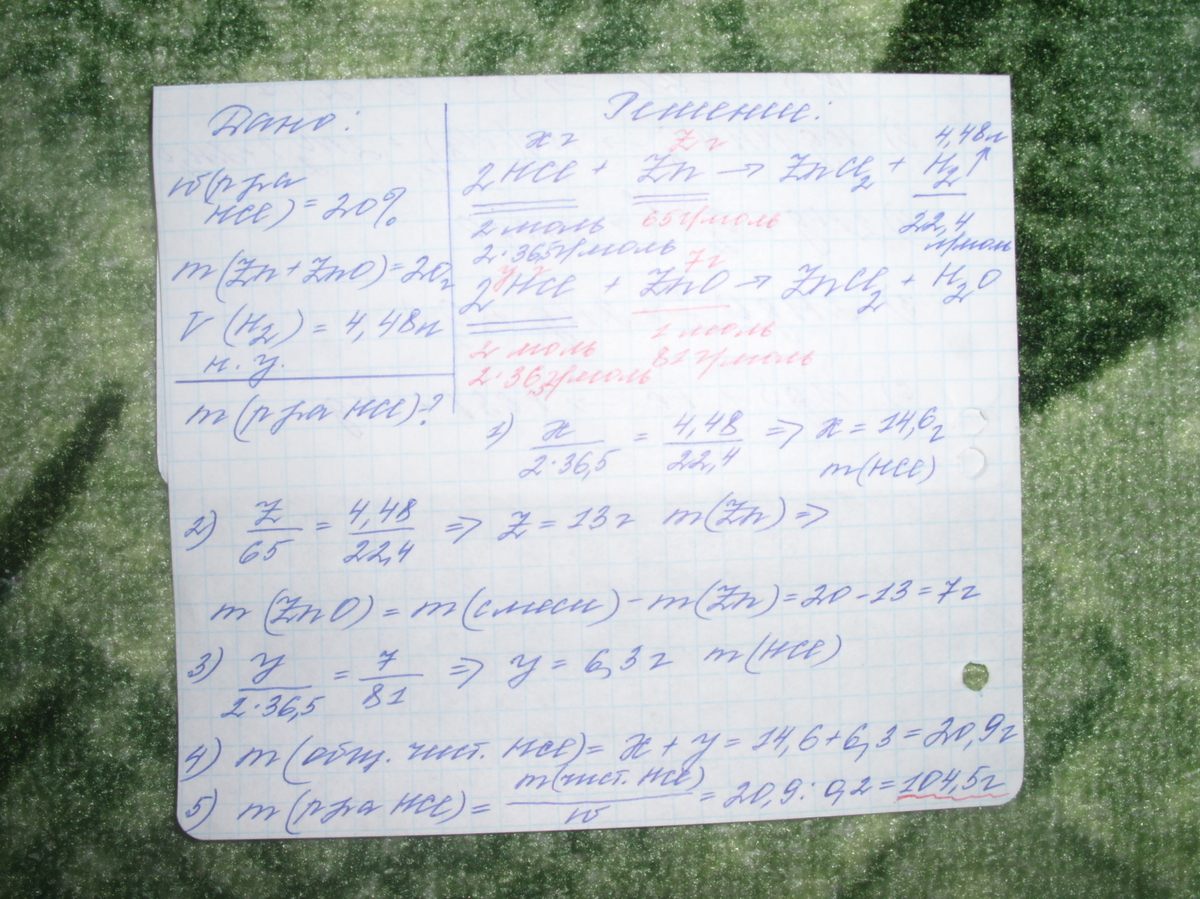 Дано:
w(р-ра
HCl) = 20%
m(Zn + ZnO) = 20г
V(H₂) = 4,48л
н. у.
m(р-ра HCl)-?
Решение:
x г z г 4,48л
2HCl + Zn → ZnCl₂ + H₂↑
2 моль 65г/моль 22,4
2·36,5г/моль л/моль
y г 7г
2HCl + ZnO → ZnCl₂ + H₂O
2 моль 1 моль
2·36,5г/моль 81г/моль
1) x/2·36,5 = 4,48/22,4 => x = 14,6г
m(HCl)
2) z/65 = 4,48/22,4 => z = 13г m(Zn) =>
m(ZnO) = m(смеси) - m(Zn) = 20 - 13 = 7г
3) y/2·36,5 = 7/81 => y = 6,3г m(HCl)
4) m(общ. чист. HCl) = x + y = 14,6 + 6,3 = 20,9г
5) m(р-ра HCl) = m(чист. HCl)/w = 20,9 : 0,2 = 104,5г